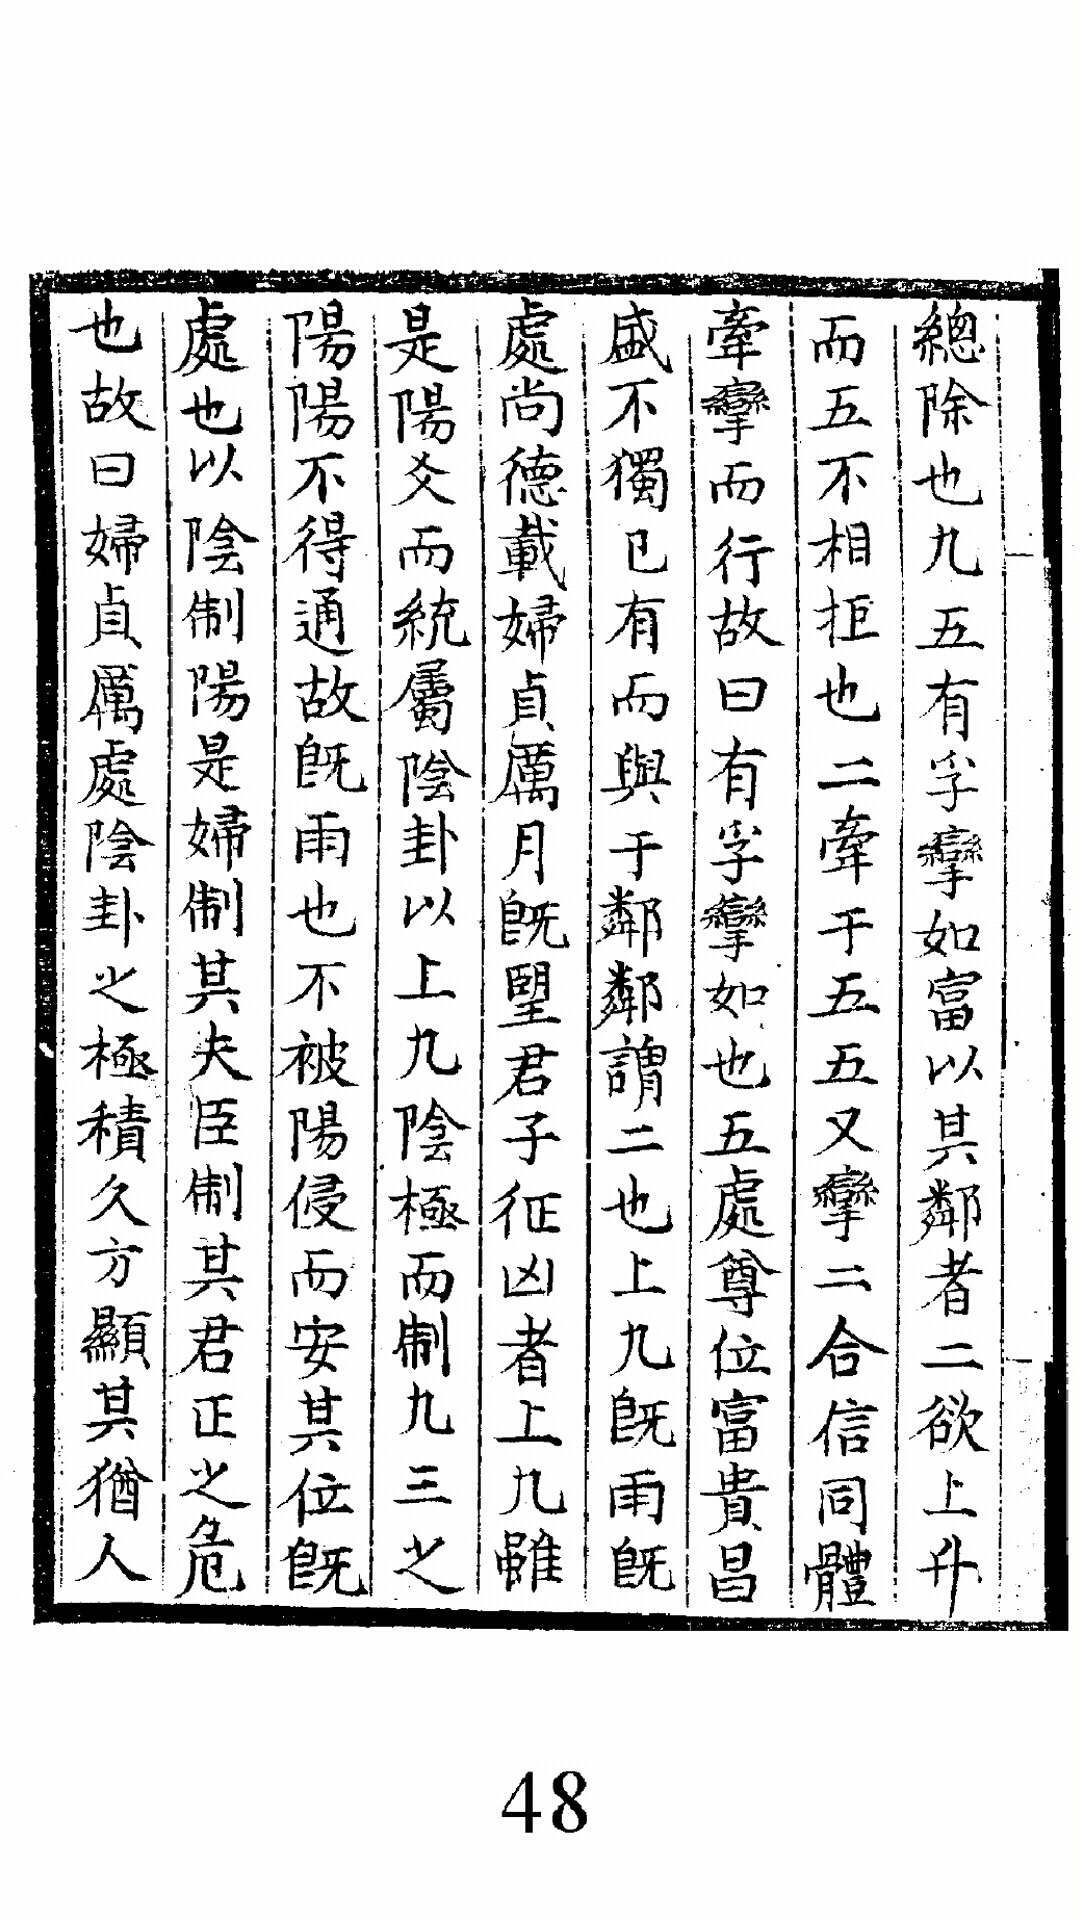 總除也九五有孚攣如富以其鄰者二欲上升
而五不相拒也二牽于五五又攣二合信同體
牽攣而行故曰有孚攣如也五處尊位富貴昌
盛不獨已有而與于鄰鄰謂二也上九旣雨旣
處尚德載婦貞厲月旣朢君子征凶者上九雖
是陽爻而統屬陰卦以上九陰極而制九三之
陽陽不得通故旣雨也不被陽侵而安其位旣
處也以陰制陽是婦制其夫臣制其君正之危
也故曰婦貞厲處陰卦之極積久方顯其猶人
48